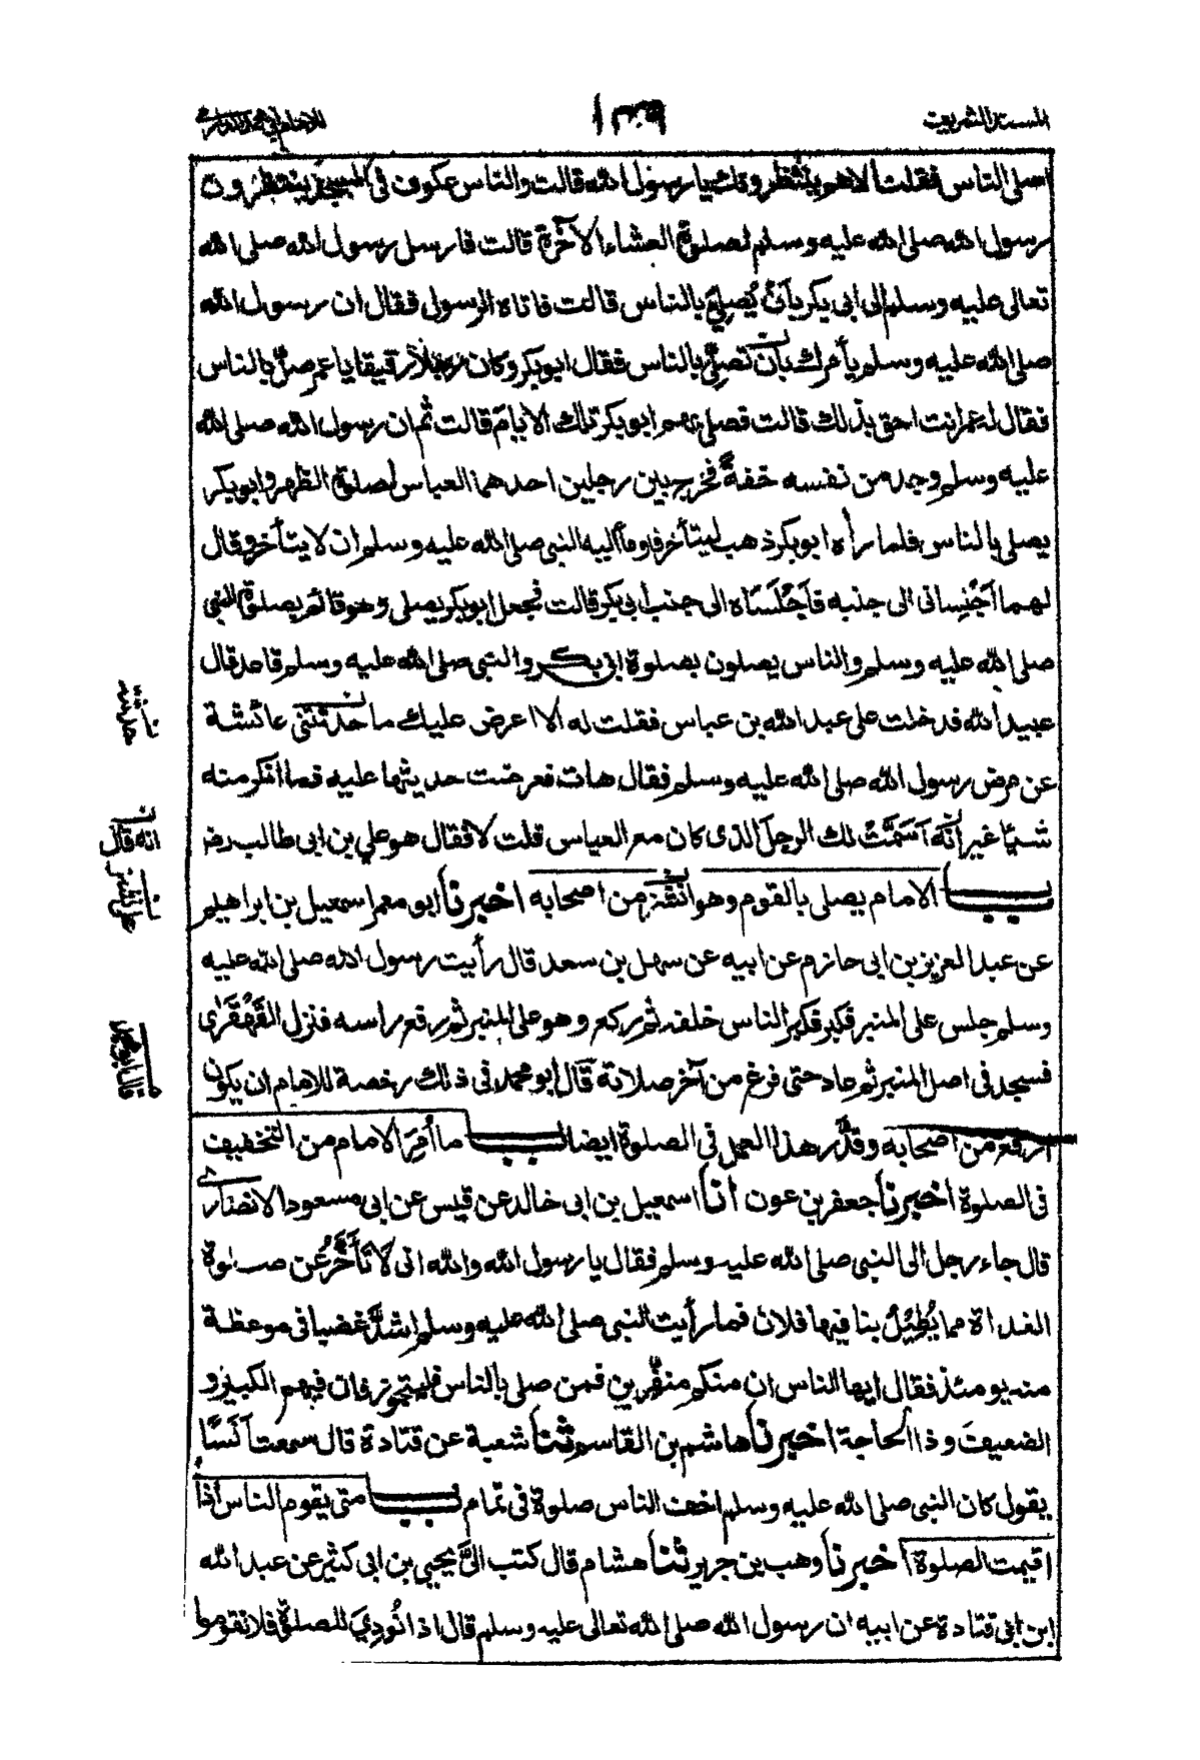 المسند الشريف
اصلى الناس فقلت لا هم ينتظرونك يا رسول الله قالت والناس عكوف فى المسجد ينتظرون
رسول الله صلى الله عليه وسلم لصلوة العشاء الآخرة قالت فارسل رسول الله صلى الله
تعالى عليه وسلم الى ابى بكر بأن يُصلِّيَ بالناس قالت فاتاه الرسول فقال ان رسول الله
صلى الله عليه وسلم يأمرك بأن تصلِّيَ بالناس فقال ابو بكر وكان رجلًا رقيقا يا عمر صلِّ بالناس
فقال له عمر انت احق بذلك قالت فصلى بهم ابو بكر تلك الايام قالت ثم ان رسول الله صلى الله
عليه وسلم وجد من نفسه خفةً فخرج بين رجلين احدهما العباس لصلوة الظهر وابو بكر
يصلى بالناس فلما رأه ابو بكر ذهب ليتأخر فاومأ اليه النبى صلى الله عليه وسلم ان لا يتأخر وقال
لهما اَجْلِسانى الى جنبه فاَجْلَسَاه الى جنب ابى بكر قالت فجعل ابو بكر يصلى وهو قائم بصلوة النبى
صلى الله عليه وسلم والناس يصلون بصلوة ابى بكر والنبى صلى الله عليه وسلم قاعد قال
عبيد الله فدخلت على عبد الله بن عباس فقلت له الا اعرض عليك ما حدثتنى عائشة
عن مرض رسول الله صلى الله عليه وسلم فقال هات فعرضت حديثها عليه فما انكر منه
شيئا غير أنه اَسَمَّتْ لك الرجلَ الذى كان مع العباس قلت لا فقال هو علي بن ابى طالب رضـ
بـــاب الامام يصلى بالقوم وهو انشز من اصحابه اخبرنا ابو معمر اسمعيل بن ابراهيم
عن عبد العزيز بن ابى حازم عن ابيه عن سهل بن سعد قال رأيت رسول الله صلى الله عليه
وسلم جلس على المنبر فكبر فكبر الناس خلفه ثم ركع وهو على المنبر ثم رفع راسه فنزل القَهْقَرٰى
فسجد فى اصل المنبر ثم عاد حتى فرغ من آخر صلاته قال ابو محمد فى ذلك رخصة للامام ان يكون
ارفع من اصحابه وقَدْر هذا العمل في الصلوة ايضا بـــاب ما أُمِرَ الامام من التخفيف
فى الصلوة اخبرنا جعفر بن عون انا اسمعيل بن ابى خالد عن قيس عن ابى مسعود الانصارى
قال جاء رجل الى النبى صلى الله عليه وسلم فقال يا رسول الله والله انى لَاَتَأَخَّرُ عن صلوة
الغداة مما يُطِيلُ بنا فيها فلان فما رأيت النبى صلى الله عليه وسلم اشدَّ غضبا فى موعظة
منه يومئذ فقال ايها الناس ان منكم منفِّرين فمن صلى بالناس فليتجوز فان فيهم الكبير و
الضعيف وذا الحاجة اخبرنا هاشم بن القاسم ثنا شعبة عن قتادة قال سمعت اَنَسًا
يقول كان النبى صلى الله عليه وسلم اخف الناس صلوة فى تمام بـــاب متى يقوم الناس اذا
اقيمت الصلوة اخبرنا وهب بن جرير ثنا هشام قال كتب الىَّ يحيى بن ابى كثير عن عبد الله
ابن ابى قتادة عن ابيه ان رسول الله صلى الله تعالى عليه وسلم قال اذا نُودِيَ للصلوة فلا تقوموا
انه قال